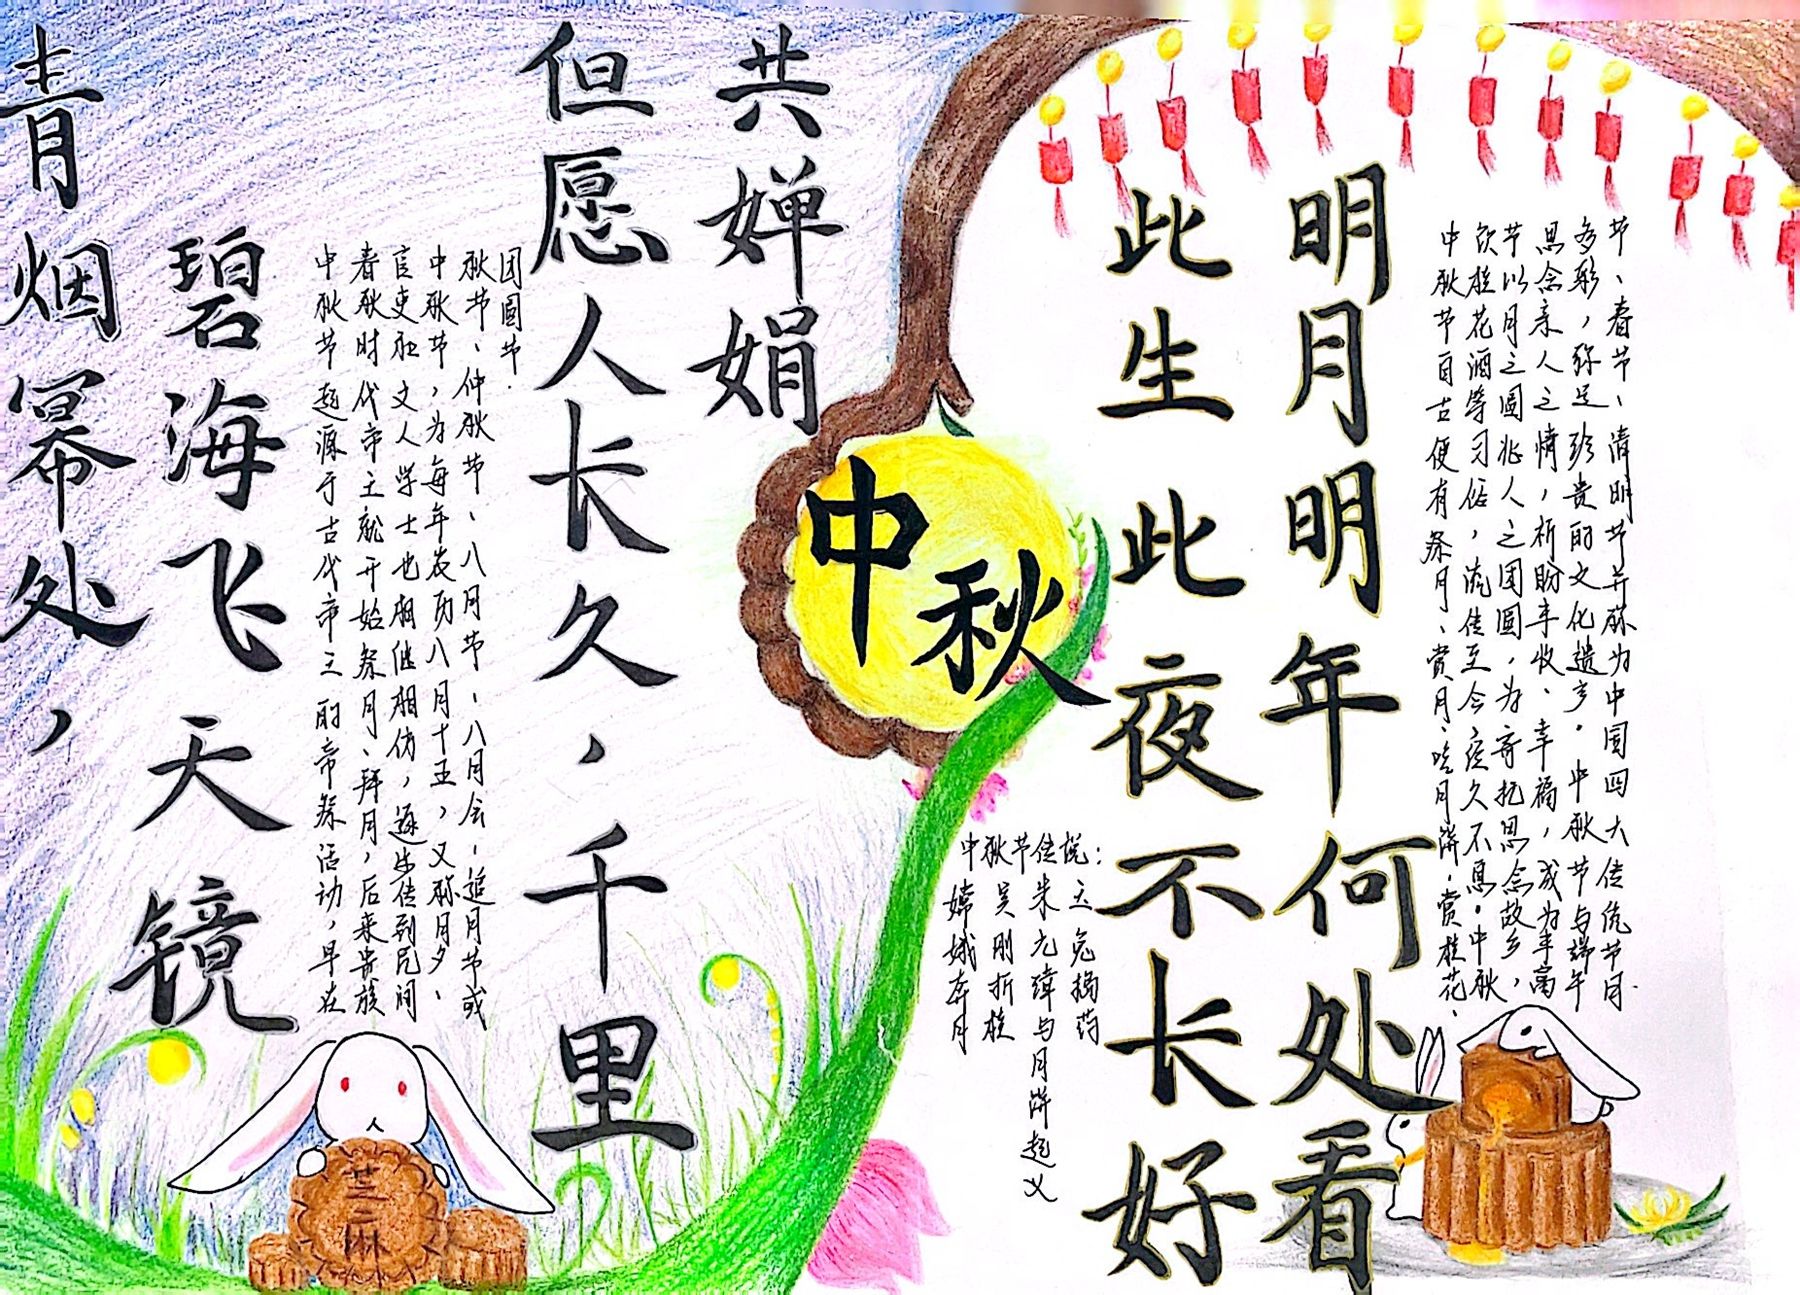 青烟幂处，
碧海飞天镜
中秋节起源于古代帝王的帝祭活动，早在
春秋时代帝王就开始祭月、拜月，后来贵族
官吏和文人学士也相继相仿，逐步传到民间
中秋节，为每年农历八月十五，又称月夕、
秋节、仲秋节、八月节、八月会、追月节或
团圆节.
但愿人长久，千里
共婵娟
中秋
中秋节传说：
嫦娥奔月
吴刚折桂
朱元璋与月饼起义
玉兔捣药
此生此夜不长好
明月明年何处看
中秋节自古便有祭月、赏月、吃月饼、赏桂花、
饮桂花酒等习俗，流传至今久不息。中秋
节以月之圆兆人之团圆，为寄托思念故乡，
思念亲人之情，祈盼丰收、幸福，成为丰富
多彩，弥足珍贵的文化遗产。中秋节与端午
节、春节、清明节并称为中国四大传统节日.